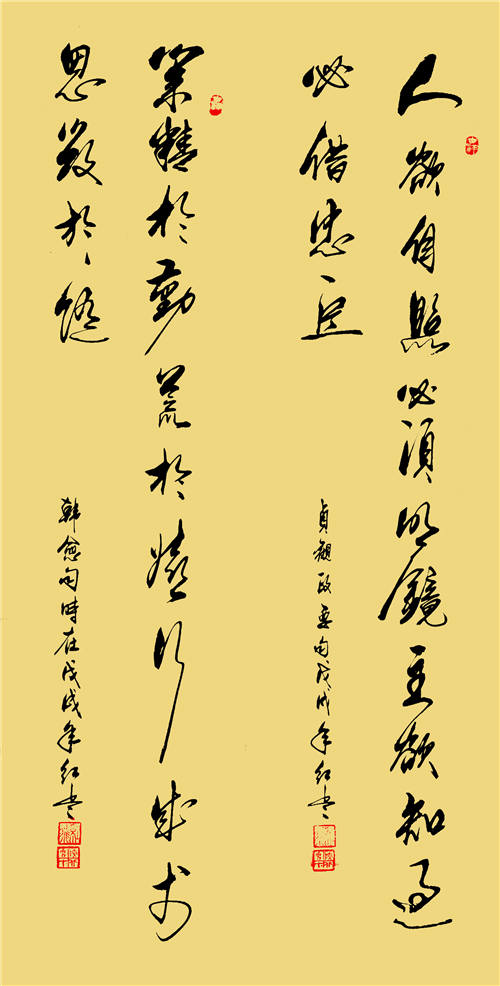 人欲自照必須明鏡主欲知過
必借忠臣
貞觀政要句戊戌年紅書
業精於勤荒於嬉行成於
思毀於隨
韓愈句時在戊戌年紅書